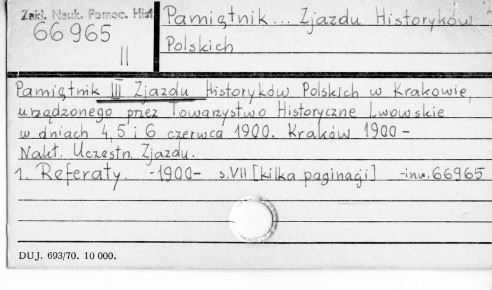 Zakł. Nauk. Pomoc. Hist
66965
II
Pamiętnik... Zjazdu Historyków
Polskich
Pamiętnik III Zjazdu Historyków Polskich w Krakowie,
urządzonego przez Towarzystwo Historyczne Lwowskie
w dniach 4, 5 i 6 czerwca 1900. Kraków 1900 -
Nakł. Uczestn. Zjazdu.
1. Referaty. -1900- s. VII [kilka paginagi] -inw. 66965
DUJ. 693/70. 10 000.